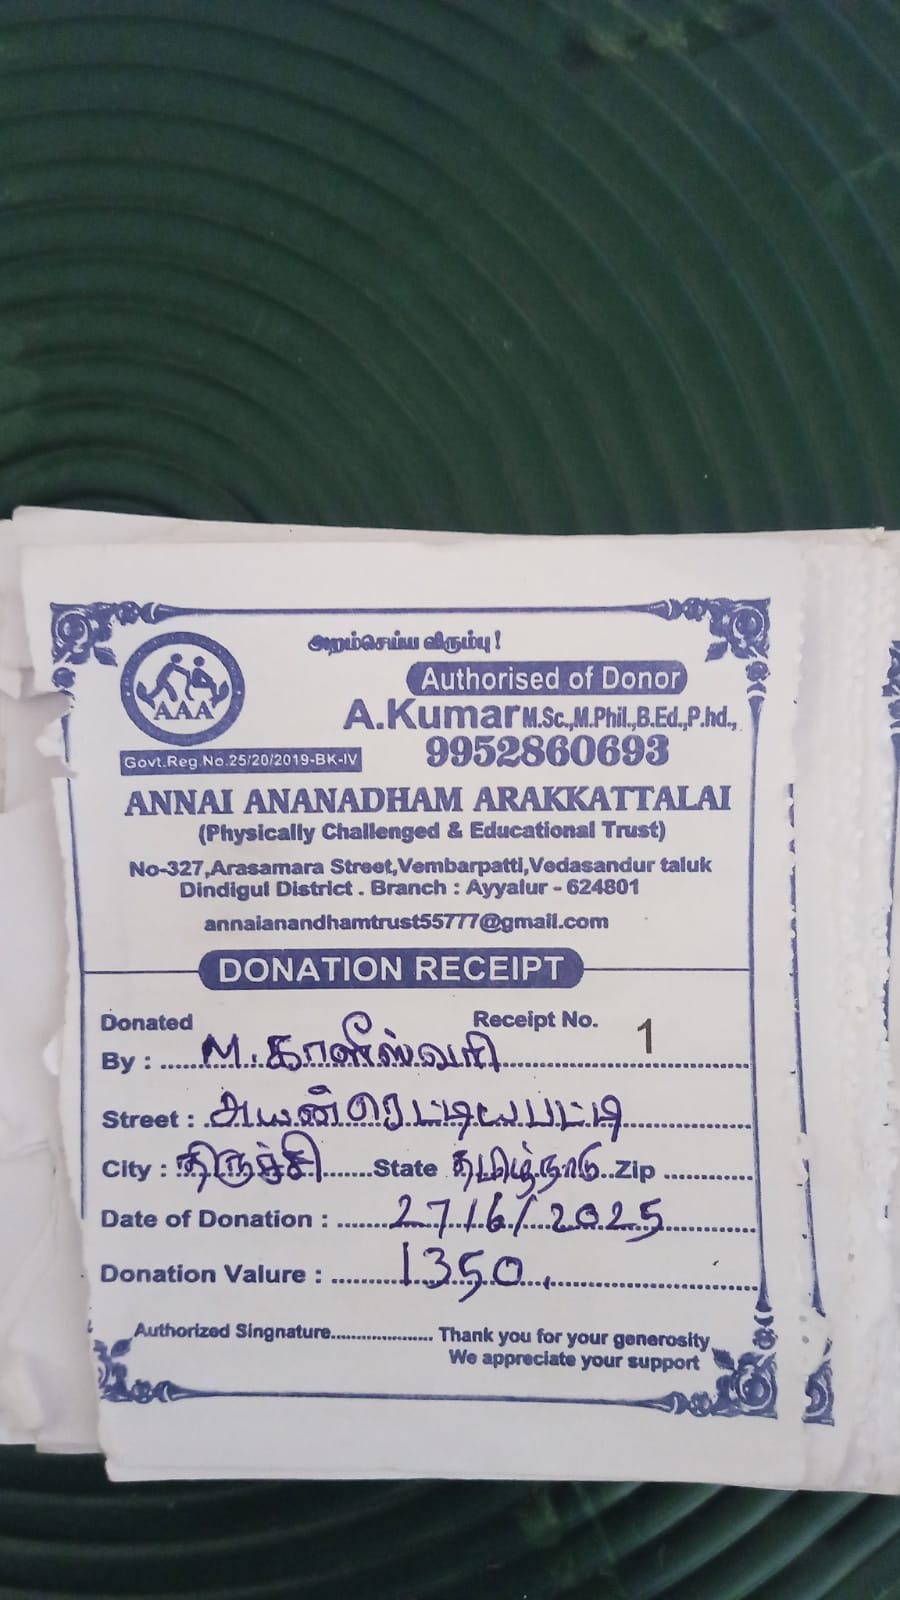 அறம்செய்ய விரும்பு !
Authorised of Donor
AAA
A.Kumar M.Sc.,M.Phil.,B.Ed.,P.hd.,
9952860693
Govt.Reg.No.25/20/2019-BK-IV
ANNAI ANANADHAM ARAKKATTALAI
(Physically Challenged & Educational Trust)
No-327,Arasamara Street,Vembarpatti,Vedasandur taluk
Dindigul District . Branch : Ayyalur - 624801
annaianandhamtrust55777@gmail.com
DONATION RECEIPT
Donated Receipt No. 1
By : M. காளீஸ்வரி
Street : அயன்ரெட்டியபட்டி
City : திருச்சி State தமிழ்நாடு Zip
Date of Donation : 27/6/2025
Donation Valure : 1350
Authorized Singnature Thank you for your generosity
We appreciate your support